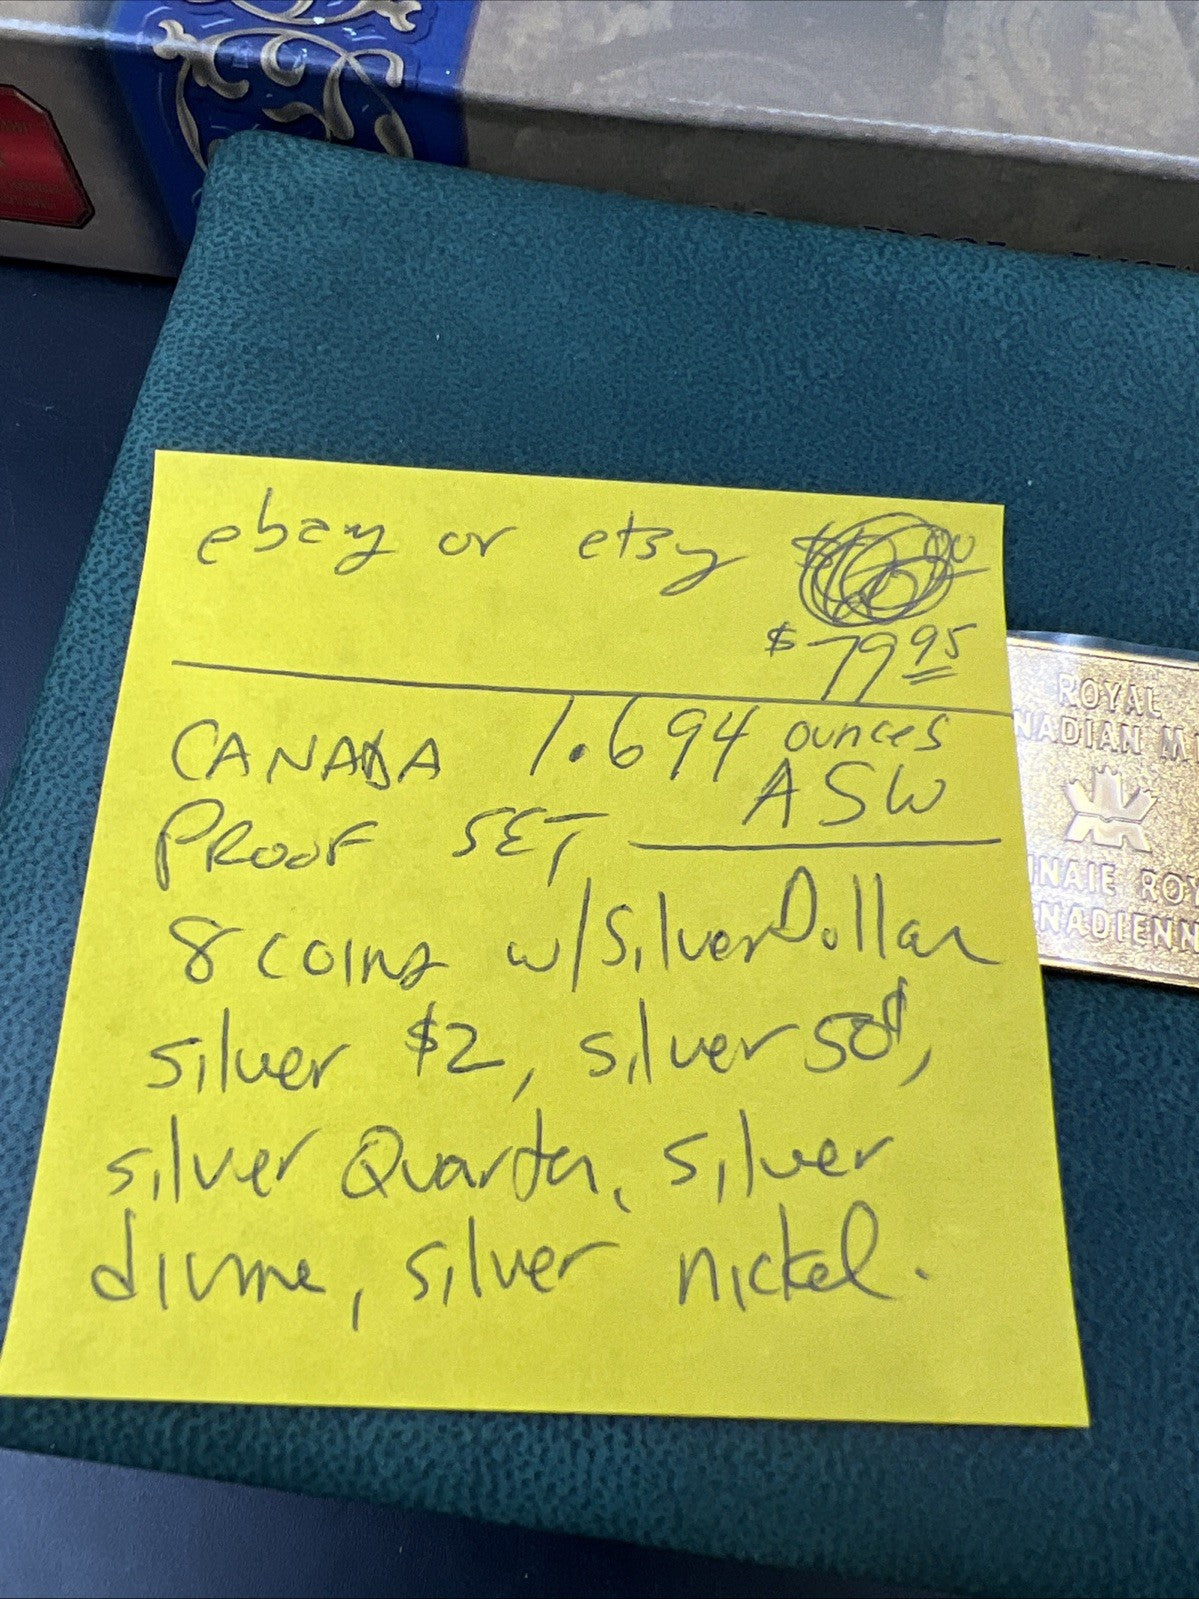 ebay or etsy
$79.95
CANADA 1.694 ounces
ASW
PROOF SET
8 coins w/Silver Dollar
silver $2, silver 50¢,
silver Quarter, silver
dime, silver nickel.
ROYAL
NADIAN M
NNAIE ROY
NADIENN